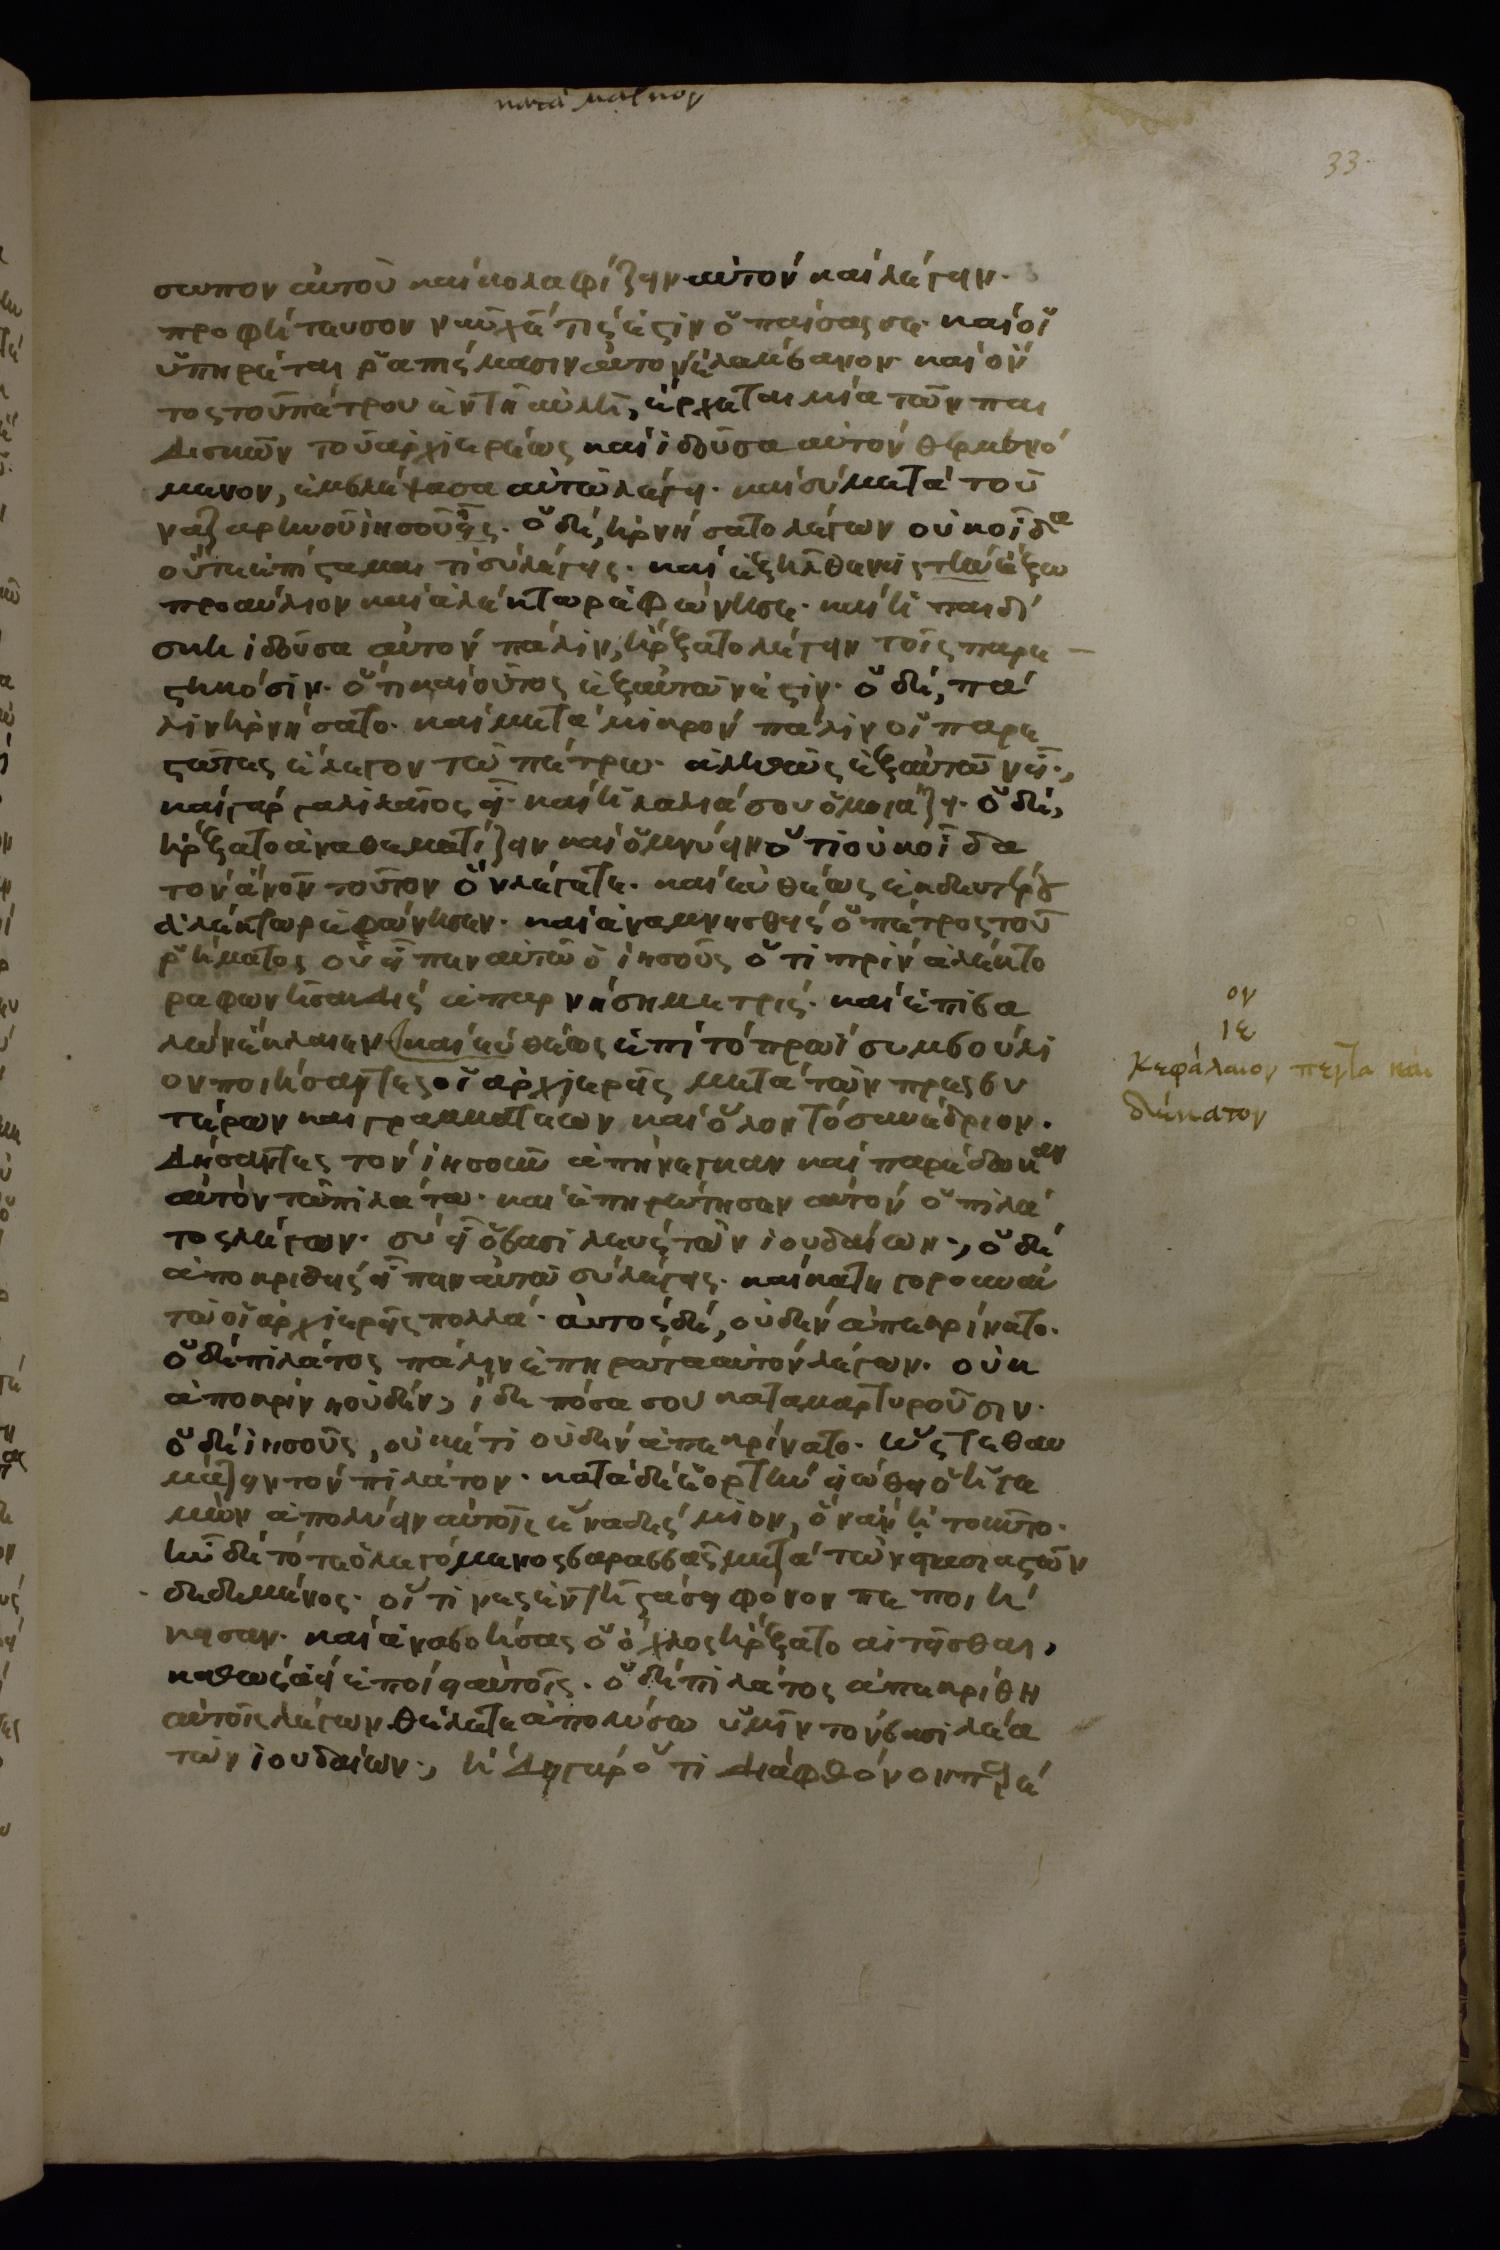 κατὰ μάρκον
33
σωπον αὐτοῦ καὶ κολαφίζειν αὐτὸν καὶ λέγειν·
προφήτευσον ἡμῖν χ̅ε̅ τίς ἐστιν ὁ παίσας σε· καὶ οἱ
ὑπηρέται ῥαπίσμασιν αὐτὸν ἐλάμβανον· καὶ ὄν
τος τοῦ πέτρου ἐν τῇ αὐλῇ, ἔρχεται μία τῶν παι
δισκῶν τοῦ ἀρχιερέως καὶ ἰδοῦσα αὐτὸν θερμενό
μενον, ἐμβλέψασα αὐτῷ λέγει· καὶ σὺ μετὰ τοῦ
ναζαρηνοῦ ἰησοῦ ἦς· ὁ δὲ, ἠρνήσατο λέγων οὐκ οἶδα
οὔτε ἐπίσταμαι τί σὺ λέγεις· καὶ ἐξῆλθεν εἰς τὴν ἔξω
προαύλιον καὶ ἀλέκτωρ ἐφώνησε· καὶ ἡ παιδί
σκη ἰδοῦσα αὐτὸν πάλιν, ἤρξατο λέγειν τοῖς παρε
στηκόσιν· ὅτι καὶ οὗτος ἐξ αὐτῶν ἐστιν· ὁ δὲ, πά
λιν ἠρνήσατο· καὶ μετὰ μικρὸν πάλιν οἱ παρε
στῶτες ἔλεγον τῷ πέτρῳ· ἀληθῶς ἐξ αὐτῶν εἶ·,
καὶ γὰρ γαλιλαῖος εἶ· καὶ ἡ λαλιά σου ὁμοιάζει· ὁ δὲ,
ἤρξατο ἀναθεματίζειν καὶ ὀμνύειν ὅτι οὐκ οἶδα
τὸν α̅ν̅ο̅ν̅ τοῦτον ὃν λέγετε· καὶ εὐθέως ἐκ δευτέρου
ἀλέκτωρ ἐφώνησεν· καὶ ἀναμνησθεὶς ὁ πέτρος τοῦ
ῥήματος οὗ εἶπεν αὐτῷ ὁ ἰησοῦς ὅτι πρὶν ἀλέκτο
ρα φωνῆσαι δὶς ἀπαρνήσῃ με τρίς· καὶ ἐπιβα
λὼν ἔκλαιεν· καὶ εὐθέως ἐπὶ τὸ πρωῒ συμβούλι
ον ποιήσαντες οἱ ἀρχιερεῖς μετὰ τῶν πρεσβυ
τέρων καὶ γραμματέων καὶ ὅλον τὸ συνέδριον·
δήσαντες τὸν ἰησοῦν ἀπήνεγκαν καὶ παρέδωκαν
αὐτὸν τῷ πιλάτῳ· καὶ ἐπηρώτησεν αὐτὸν ὁ πιλά
τος λέγων· σὺ εἶ ὁ βασιλεὺς τῶν ἰουδαίων·, ὁ δὲ
ἀποκριθεὶς εἶπεν αὐτῷ σὺ λέγεις· καὶ κατηγόρουν αὐ
τοῦ οἱ ἀρχιερεῖς πολλά· αὐτὸς δὲ, οὐδὲν ἀπεκρίνατο·
ὁ δὲ πιλᾶτος πάλιν ἐπηρώτα αὐτὸν λέγων· οὐκ
ἀποκρίνῃ οὐδέν·, ἴδε πόσα σου καταμαρτυροῦσιν·
ὁ δὲ ἰησοῦς, οὐκέτι οὐδὲν ἀπεκρίνατο· ὥστε θαυ
μάζειν τὸν πιλᾶτον· κατὰ δὲ ἑορτὴν εἰώθει ὁ ἡγε
μὼν ἀπολύειν αὐτοῖς ἕνα δέσμιον, ὃν ἂν ᾐτοῦντο·
ἦν δὲ τότε ὁ λεγόμενος βαραββᾶς μετὰ τῶν συστασιαστῶν
δεδεμένος· οἵτινες ἐν τῇ στάσει φόνον πεποιή
κησαν· καὶ ἀναβοήσας ὁ ὄχλος ἤρξατο αἰτεῖσθαι,
καθὼς ἀεὶ ἐποίει αὐτοῖς· ὁ δὲ πιλᾶτος ἀπεκρίθη
αὐτοῖς λέγων θέλετε ἀπολύσω ὑμῖν τὸν βασιλέα
τῶν ἰουδαίων·, ᾔδει γὰρ ὅτι διὰ φθόνον
ον
ιε
κεφάλαιον πέντε καὶ
δέκατον